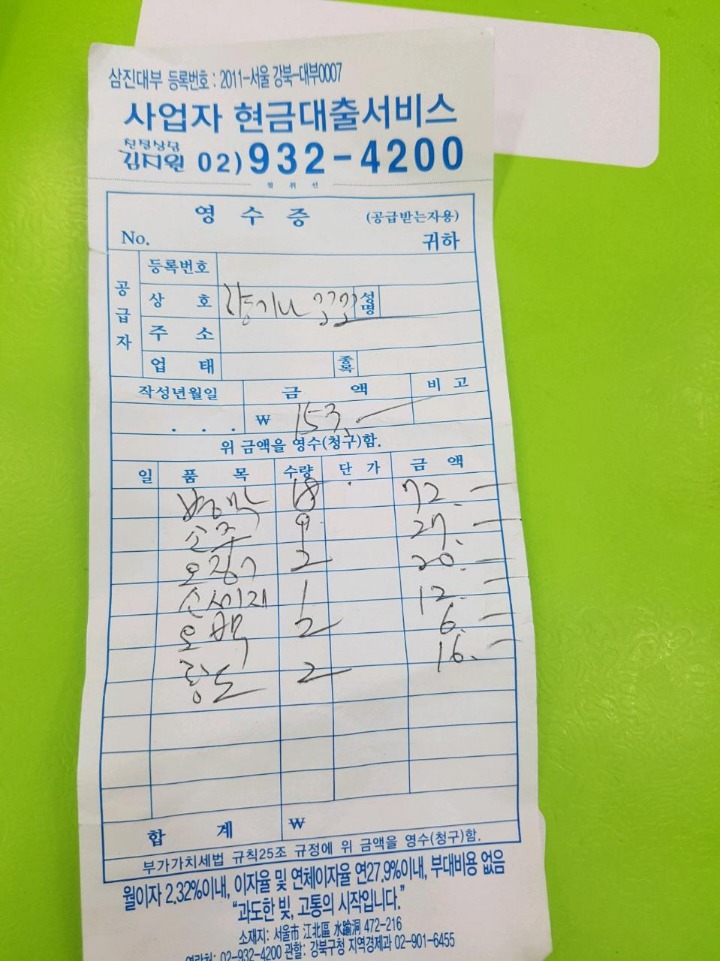 삼진대부 등록번호 : 2011-서울 강북-대부0007
사업자 현금대출서비스
친절상담
김지원 02)932-4200
절 취 선
영 수 증 (공급받는자용)
No. 귀하
공급자
등록번호
상 호 성명
주 소
업 태 종목
작성년월일 금 액 비 고
. . . ₩ 153.-
위 금액을 영수(청구)함.
일 품 목 수량 단 가 금 액
병맥 18 72.-
소주 9 27.-
오징어 2 20.-
소세지 1 12.-
2 6.-
황도 2 16.-
합 계 ₩
부가가치세법 규칙25조 규정에 위 금액을 영수(청구)함.
월이자 2.32%이내, 이자율 및 연체이자율 연27.9%이내, 부대비용 없음
"과도한 빚, 고통의 시작입니다."
소재지: 서울市 江北區 水踰洞 472-216
연락처: 02-932-4200 관할: 강북구청 지역경제과 02-901-6455